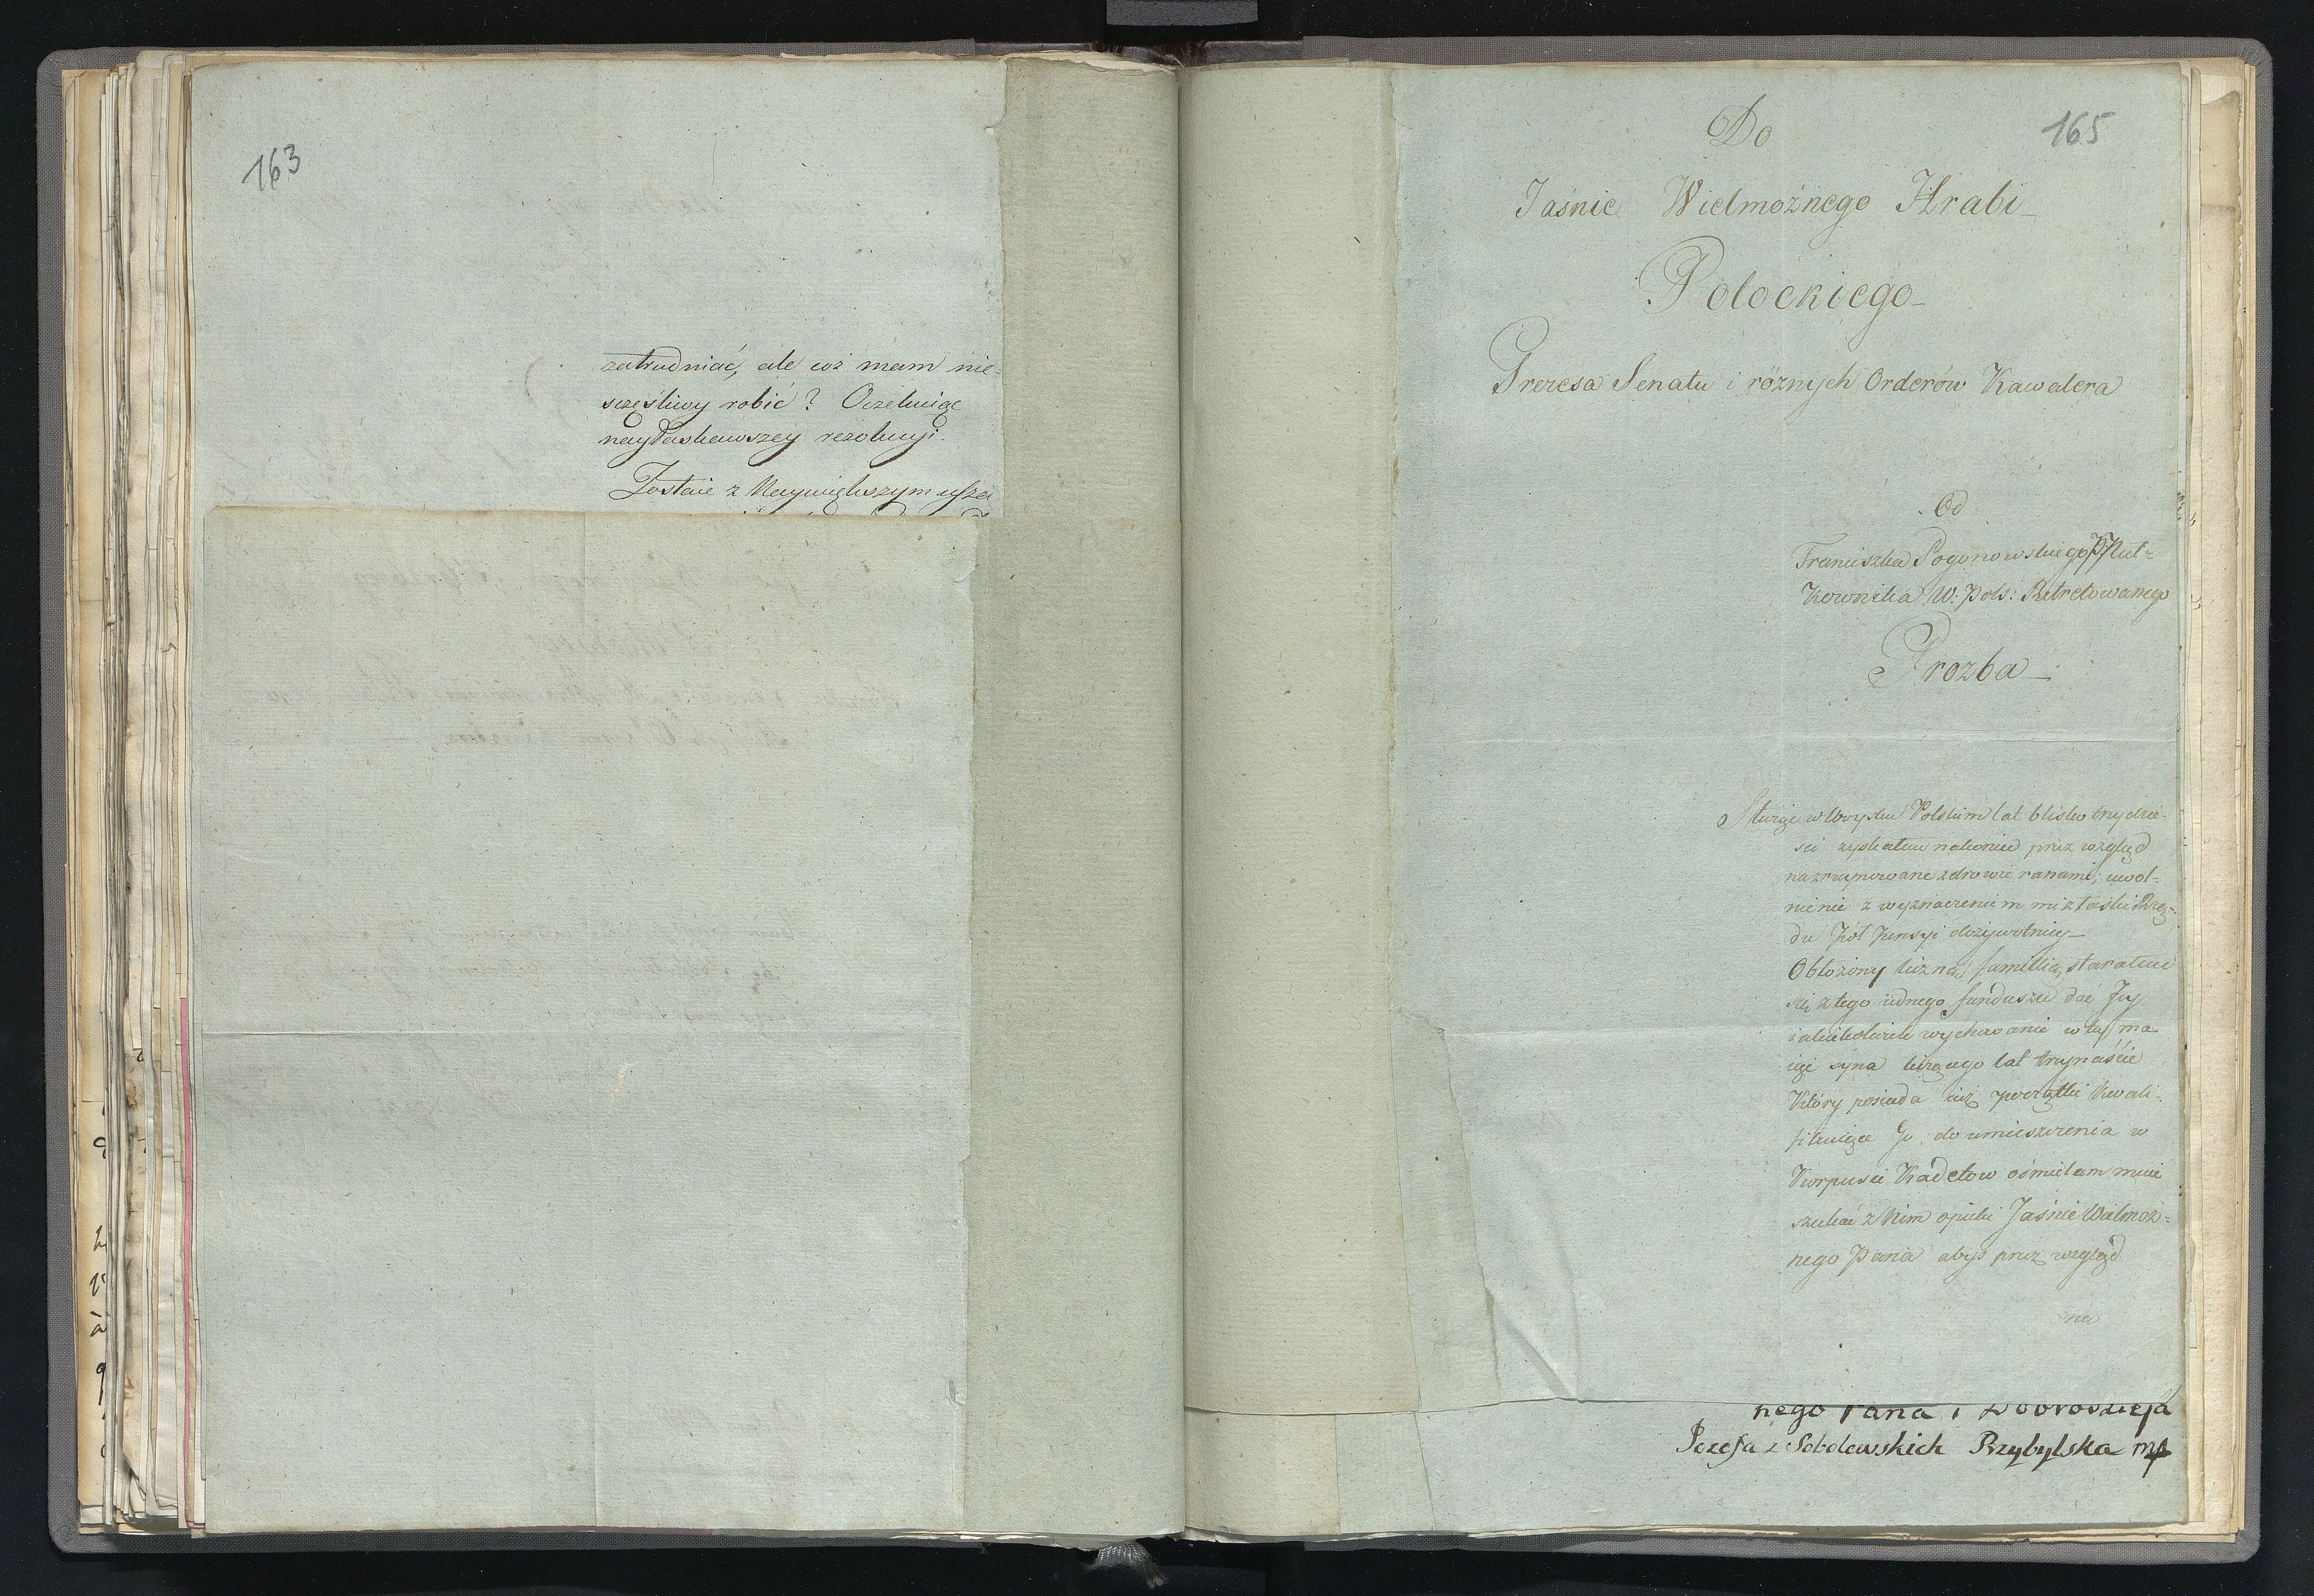 163
zatrudniać, ale coż mam nie-
sczęśliwy robić? Oczekuiąc
nayłaskawszey rezolucyi.
Zostaie z Naywiększym usza
165
Do
Jaśnie Wielmożnego Hrabi
Potockiego
Prezesa Senatu i róznych Orderów Kawalera
Od
Franciszka Pogonowskiego PPłut-
Kownika W: Pols: Retretowanego
Prozba
Służąc w Woysku Polskim lat blisko trzydzie-
sci zyskałem nakoniec przez wzgląd
na zruynowane zdrowie ranami, uwol-
nienie z wyznaczeniem mi z łaski Rzą-
du pół pensyi dożywotniey
Obłożony liczną familią, starałem
się z tego iednego funduszu dać Jey
iakiekolwiek wychowanie w tey ma
iąc syna liczącego lat trzynaście
Który posiada iuż początki kwali-
fikuiące Go do umieszczenia w
Korpusie Kadetow ośmielam mnie
szukać z Nim opieki Jaśnie Wielmoż-
nego Pana abyś przez wzgląd
na
nego Pana i Dobrodzieja
Jozefa z Sobolewskich Przybylska mp